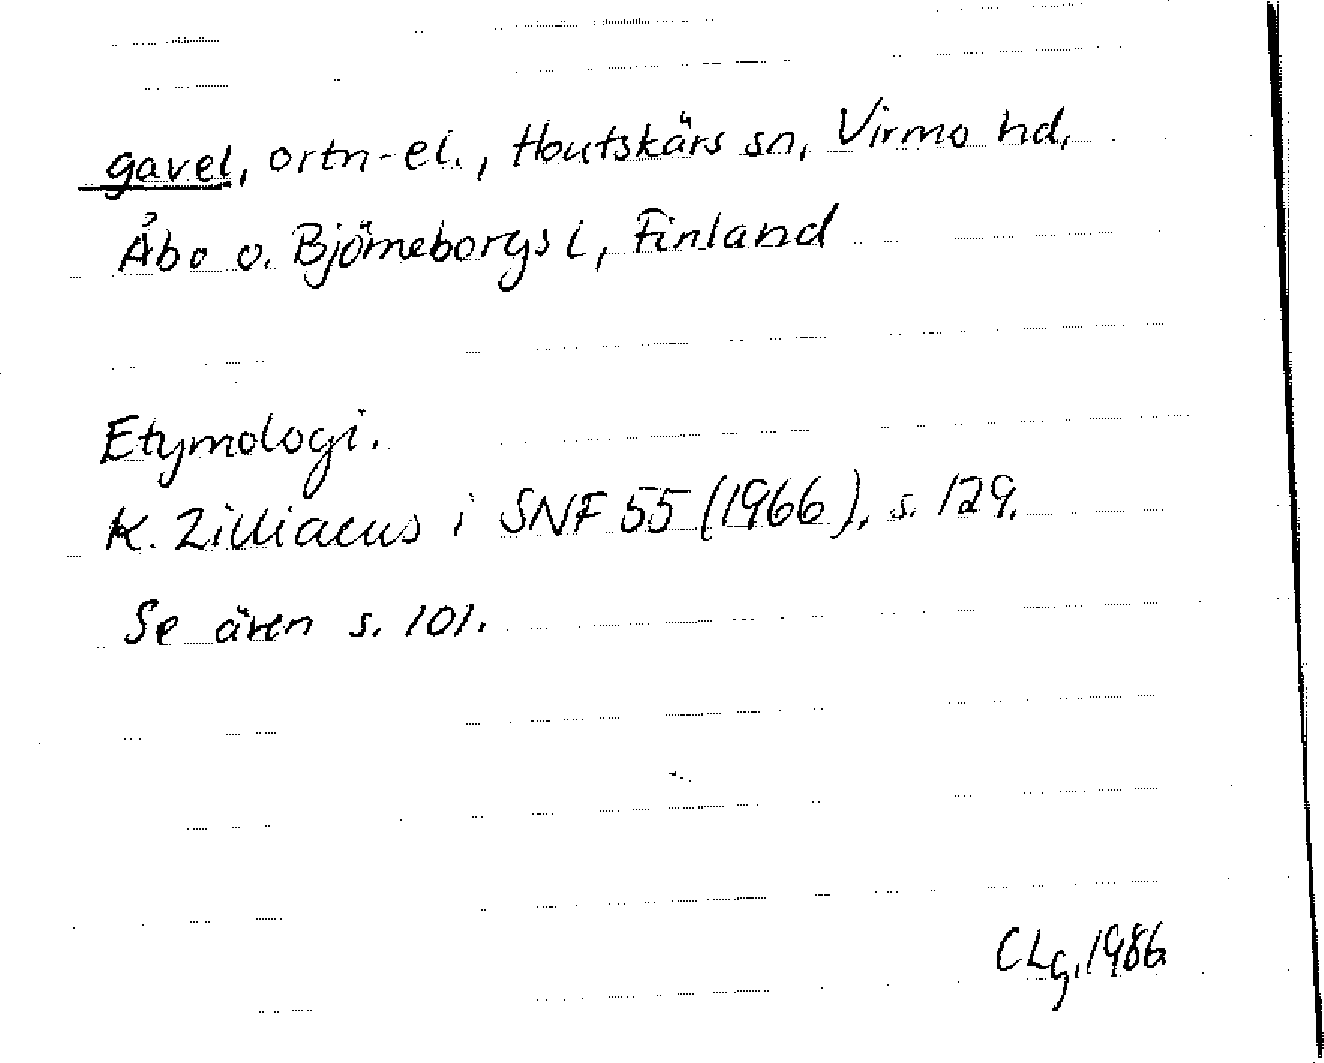 gavel, ortn-el., Houtskärs sn, Virmo hd,
Åbo o. Björneborgs l, Finland
Etymologi.
K. Zilliacus i SNF 55 (1966), s. 129.
Se även s. 101.
CLg, 1986